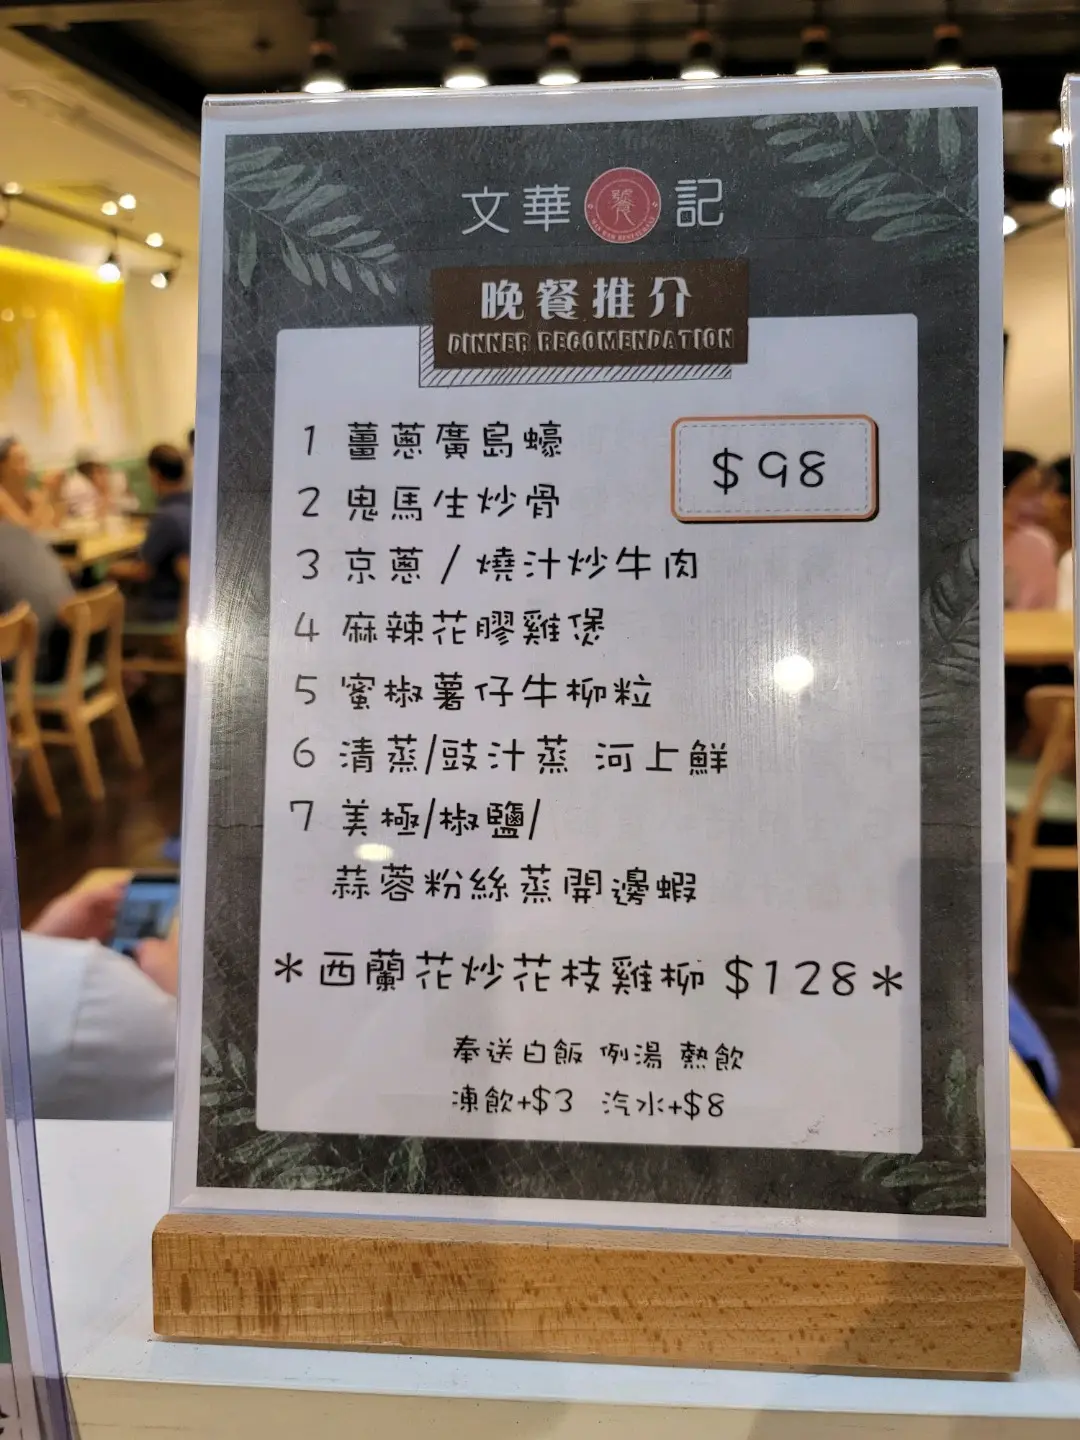 文華 饗 記
晚餐推介
DINNER RECOMENDATION
$98
1 薑蔥廣島蠔
2 鬼馬生炒骨
3 京蔥 / 燒汁炒牛肉
4 麻辣花膠雞煲
5 蜜椒薯仔牛柳粒
6 清蒸/豉汁蒸 河上鮮
7 美極/椒鹽/
蒜蓉粉絲蒸開邊蝦
*西蘭花炒花枝雞柳 $128*
奉送白飯 例湯 熱飲
凍飲+$3 汽水+$8